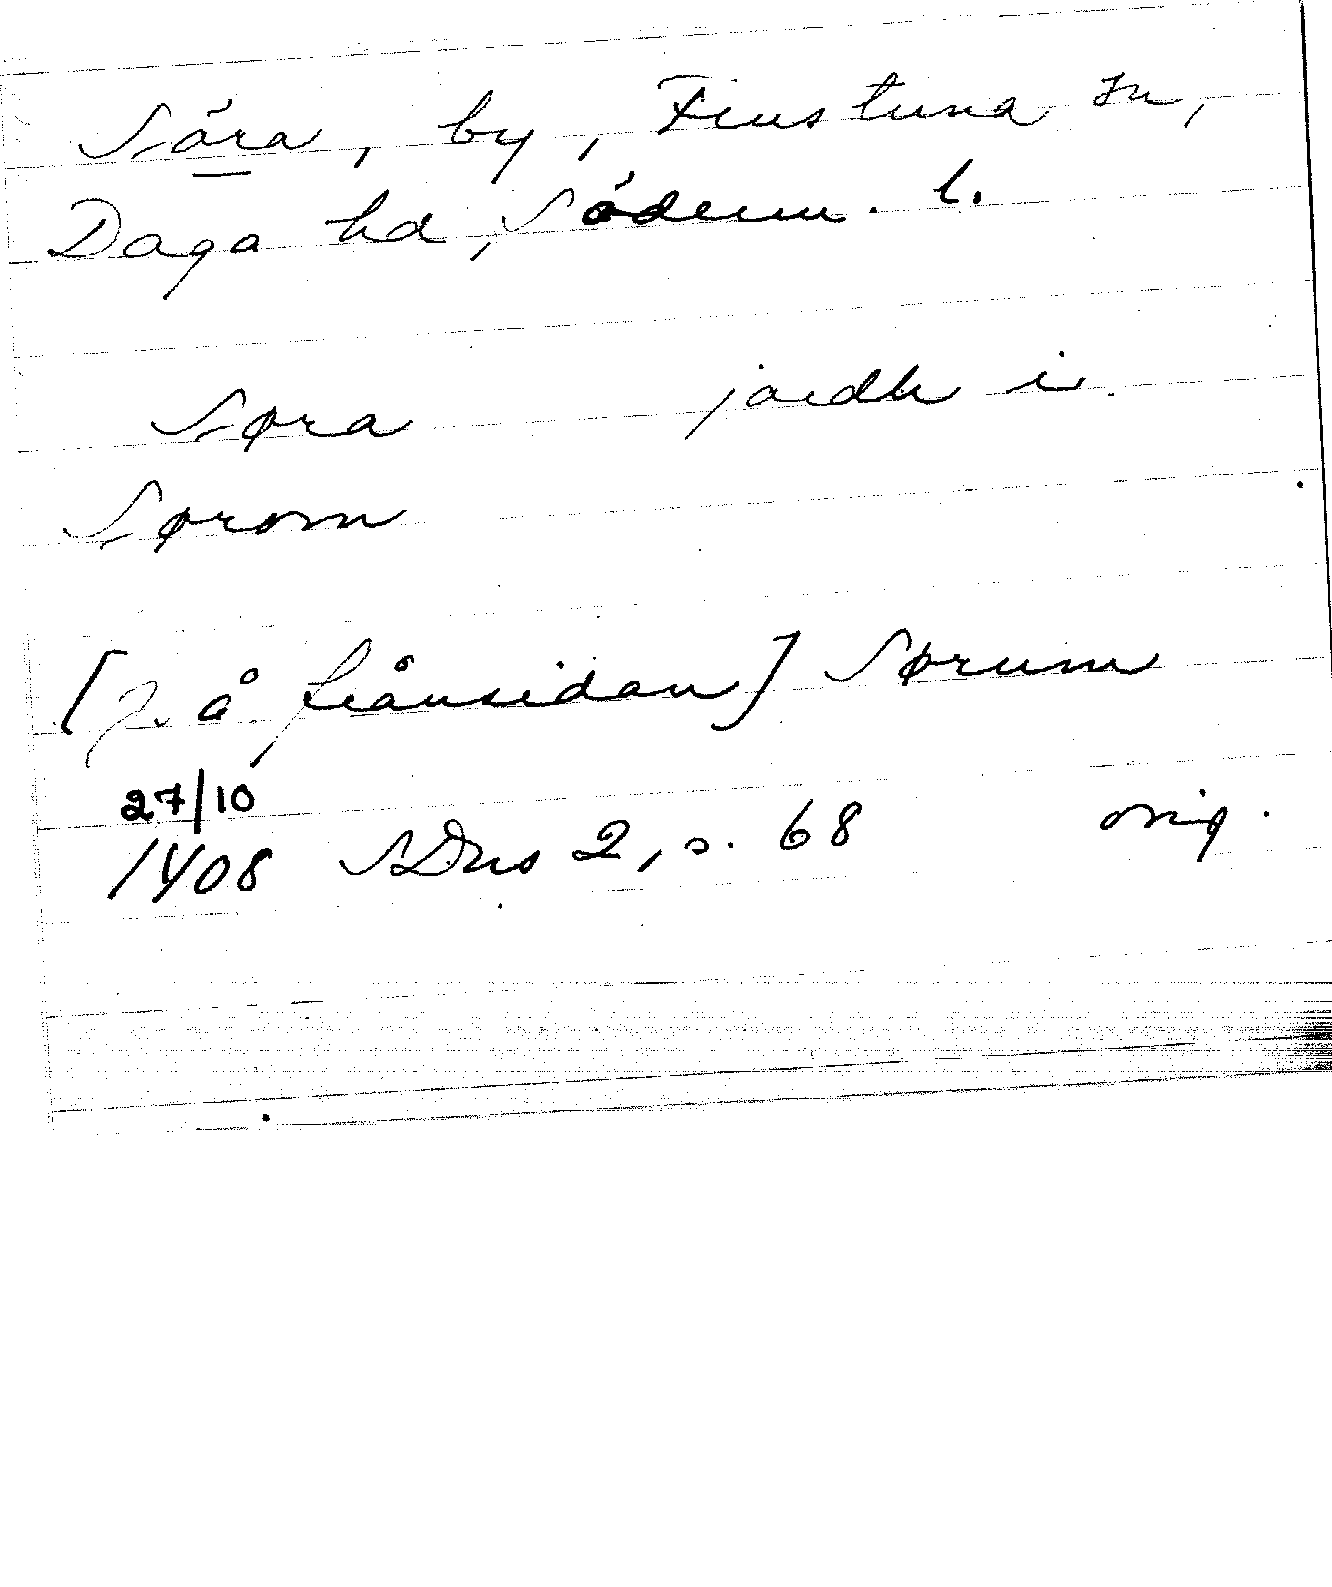 Söra, by, Frustuna sn,
Daga hd, Söderm. l.
Søra jordh i
Sørom
[på frånsidan] Sørum
27/10
1408 SDns 2, s. 68 orig.